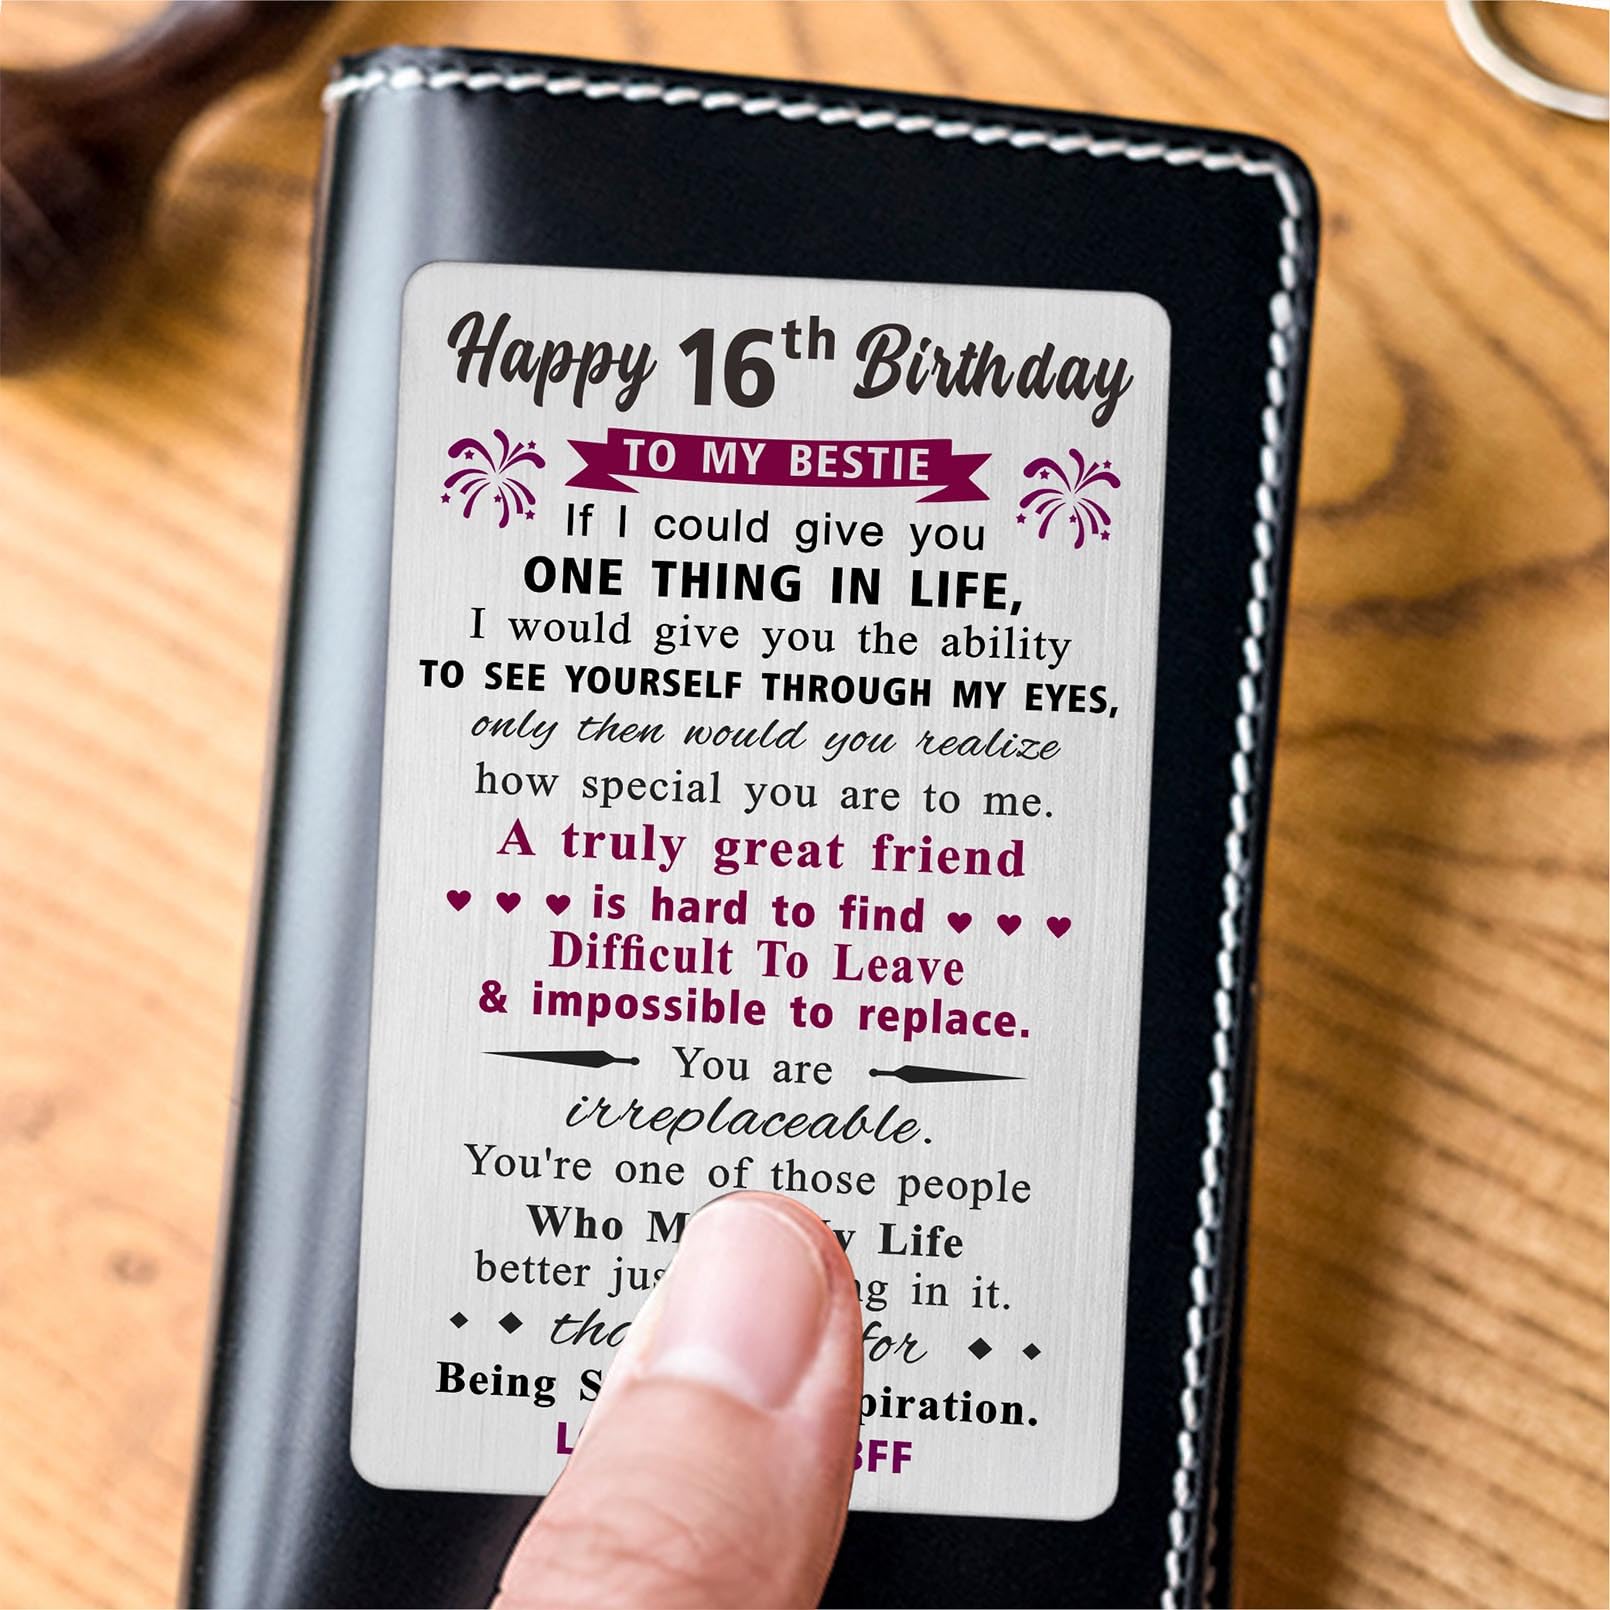 Happy 16th Birthday
TO MY BESTIE
If I could give you
ONE THING IN LIFE,
I would give you the ability
TO SEE YOURSELF THROUGH MY EYES,
only then would you realize
how special you are to me.
A truly great friend
is hard to find
Difficult To Leave
& impossible to replace.
You are
irreplaceable.
You're one of those people
Who Life
better in it.
for
Being
BFF